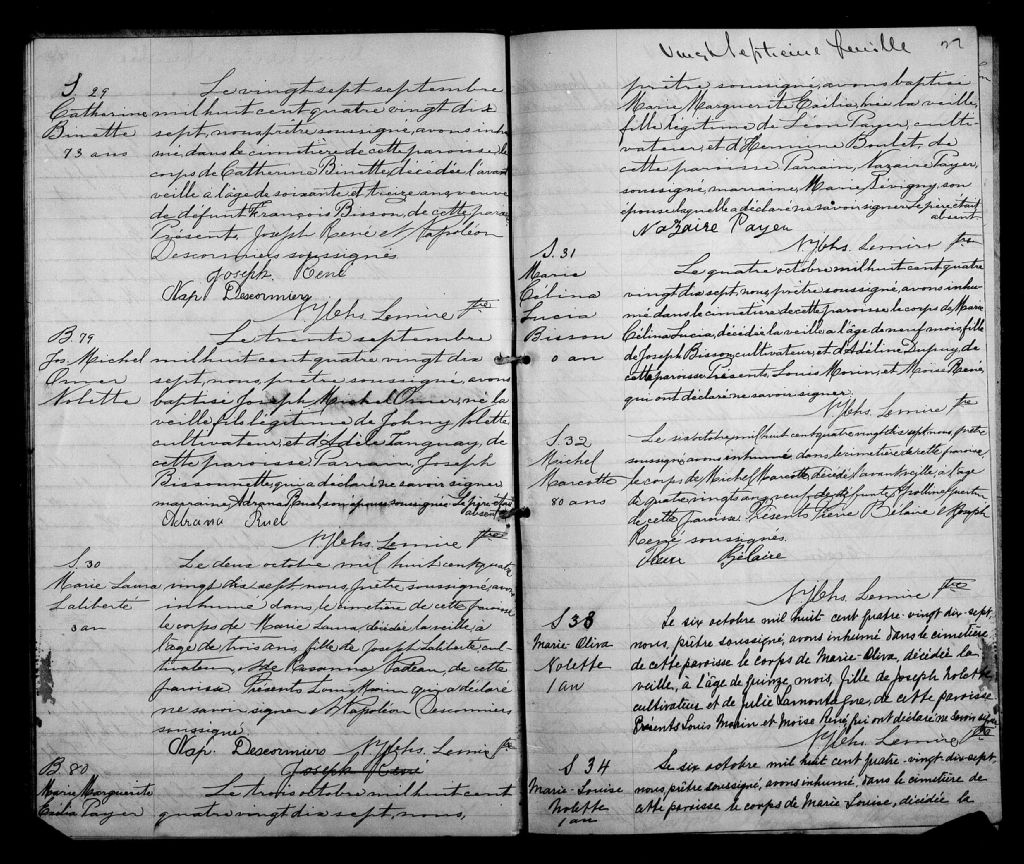 S 29
Catherine
Binette
73 ans
Le vingt sept septembre
mil huit cent quatre vingt dix
sept, nous, prêtre soussigné, avons inhu
mé dans le cimetière de cette paroisse, le
corps de Catherine Binette, décédée l'avant
veille à l'âge de soixante et treize ans, veuve
de défunt François Bisson, de cette paroisse
Présents, Joseph René et Napoléon
Descormiers soussignés
Joseph René
Nap Descormiers
Lemire Ptre
B. 79
Jos. Michel
Omer
Nolette
Le trente septembre
mil huit cent quatre vingt dix
sept, nous, prêtre soussigné, avons
baptisé Joseph Michel Omer, né la
veille, fils légitime de Johny Nolette,
cultivateur, et d'Adèle Tanguay, de
cette paroisse Parrain, Joseph
Bissonnette, qui a déclaré ne savoir signer
marraine, Adrana Ruel, son épouse soussignée. Le père était
absent
Adrana Ruel
Lemire Ptre
S. 30
Marie Laura
Laliberté
3 an
Le deux octobre mil huit cent quatre
vingt dix sept, nous, prêtre soussigné, avons
inhumé dans le cimetière de cette paroisse
le corps de Marie Laura, décédée la veille, à
l'âge de trois ans, fille de Joseph Laliberté, cul-
tivateur, et de Rosanna Nadeau, de cette
paroisse Présents Louis Morin qui a déclaré
ne savoir signer et Napoléon Descormiers
soussigné
Nap. Descormiers Lemire Ptre
Joseph René
B. 80
Marie Marguerite
Cécilia Payer
Le trois octobre mil huit cent
quatre vingt dix sept, nous,
Vingt Septième feuille 27
prêtre soussigné, avons baptisé
Marie Marguerite Cécilia, née la veille,
fille légitime de Léon Payer, culti-
vateur, et d'Hermine Boulet, de
cette paroisse Parrain, Nazaire Payer,
soussigné, marraine, Marie Sévigny, son
épouse laquelle a déclaré ne savoir signer Le père était
absent
Nazaire Payer
Lemire Ptre
S. 31
Marie
Célina
Lucia
Bisson
0 an
Le quatre octobre mil huit cent quatre
vingt dix sept, nous, prêtre soussigné, avons inhu-
mé dans le cimetière de cette paroisse, le corps de Marie
Célina Lucia, décédée la veille à l'âge de neuf mois, fille
de Joseph Bisson, cultivateur, et d'Adéline Dupuy, de
cette paroisse. Présents, Louis Morin, et Moïse René,
qui ont déclaré ne savoir signer.
Lemire Ptre
S. 32
Michel
Marcotte
80 ans
Le six octobre, mil huit cent quatre vingt dix sept nous, prêtre
soussigné avons inhumé dans le cimetière de cette paroisse,
le corps de Michel Marcotte, décédé l'avant veille, à l'âge
de quatre vingts ans,
de cette paroisse. Présents Bélaire et Joseph
René soussignés.
Bélaire
Lemire Ptre
S 33
Marie-Oliva
Nolette
1 an
Le six octobre mil huit cent quatre-vingt dix-sept,
nous, prêtre soussigné, avons inhumé dans le cimetière
de cette paroisse le corps de Marie-Oliva, décédée la
veille, à l'âge de quinze mois, fille de Joseph Nolette
cultivateur et de Julie Lamontagne, de cette paroisse
Présents Louis Morin et Moïse René qui ont déclaré ne savoir signer
Lemire Ptre
S 34
Marie-Louise
Nolette
1 an
Le six octobre mil huit cent quatre-vingt dix-sept,
nous, prêtre soussigné, avons inhumé, dans le cimetière de
cette paroisse le corps de Marie Louise, décédée la